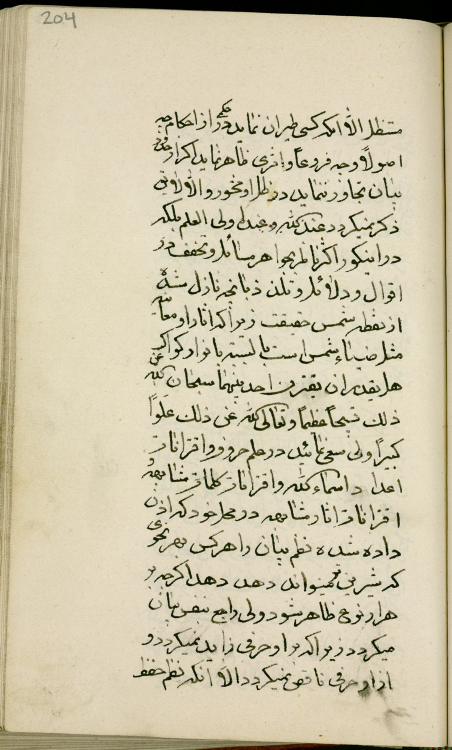 204
مستظل الا آنکه کسی طیران نماید در حکمی از احکام چه
اصولاً و چه فروعاً و اثری ظاهر نماید که از حدود
بیان تجاوز ننماید در ظل او محشور والا لایق
ذکر نمیگردد عند الله و عند اولی العلم بلکه
در این کور اکثر ناظر بجواهر مسائل و تخفف در
اقوال و دلائل و تلذذ بآنچه نازل شده
از نقطه شمس حقیقت زیرا که آثار او
مثل ضیاء شمس است بالنسبه بانوار کواکب
هل یقدر ان یقترن احد بینهما سبحان الله عن
ذلک تسبیحاً عظیماً و تعالی الله عن ذلک علواً
کبیراً ولی سعی نمائید در علم حروف و اقترانات
اعداد اسماء الله و اقترانات کلمات مشابهه و
اقترانات آثار مشابهه در محل خود که اذن
داده شده نظم بیان را هر کس بهر نحوی
که شیرین تر میتواند دهد دهد اگر چه بر
هزار نوع ظاهر شود ولی راجع بنفس بیان
میگردد زیرا که بر او حرفی زاید نمیگردد و
از او حرفی ناقص نمیگردد الا آنکه نظم حفظ